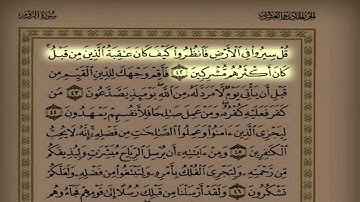 الجزء الحادي والعشرون سورة الروم
قُلْ سِيرُوا۟ فِى ٱلْأَرْضِ فَٱنظُرُوا۟ كَيْفَ كَانَ عَـٰقِبَةُ ٱلَّذِينَ مِن قَبْلُ
كَانَ أَكْثَرُهُم مُّشْرِكِينَ ٤٢ فَأَقِمْ وَجْهَكَ لِلدِّينِ ٱلْقَيِّمِ مِن
قَبْلِ أَن يَأْتِىَ يَوْمٌ لَّا مَرَدَّ لَهُۥ مِنَ ٱللَّهِ يَوْمَئِذٍ يَصَّدَّعُونَ ٤٣ مَن
كَفَرَ فَعَلَيْهِ كُفْرُهُۥ وَمَنْ عَمِلَ صَـٰلِحًا فَلِأَنفُسِهِمْ يَمْهَدُونَ ٤٤
لِيَجْزِىَ ٱلَّذِينَ ءَامَنُوا۟ وَعَمِلُوا۟ ٱلصَّـٰلِحَـٰتِ مِن فَضْلِهِۦٓ إِنَّهُۥ لَا يُحِبُّ
ٱلْكَـٰفِرِينَ ٤٥ وَمِنْ ءَايَـٰتِهِۦٓ أَن يُرْسِلَ ٱلرِّيَاحَ مُبَشِّرَٰتٍ وَلِيُذِيقَكُم
مِّن رَّحْمَتِهِۦ وَلِتَجْرِىَ ٱلْفُلْكُ بِأَمْرِهِۦ وَلِتَبْتَغُوا۟ مِن فَضْلِهِۦ وَلَعَلَّكُمْ
تَشْكُرُونَ ٤٦ وَلَقَدْ أَرْسَلْنَا مِن قَبْلِكَ رُسُلًا إِلَىٰ قَوْمِهِمْ فَجَآءُوهُم